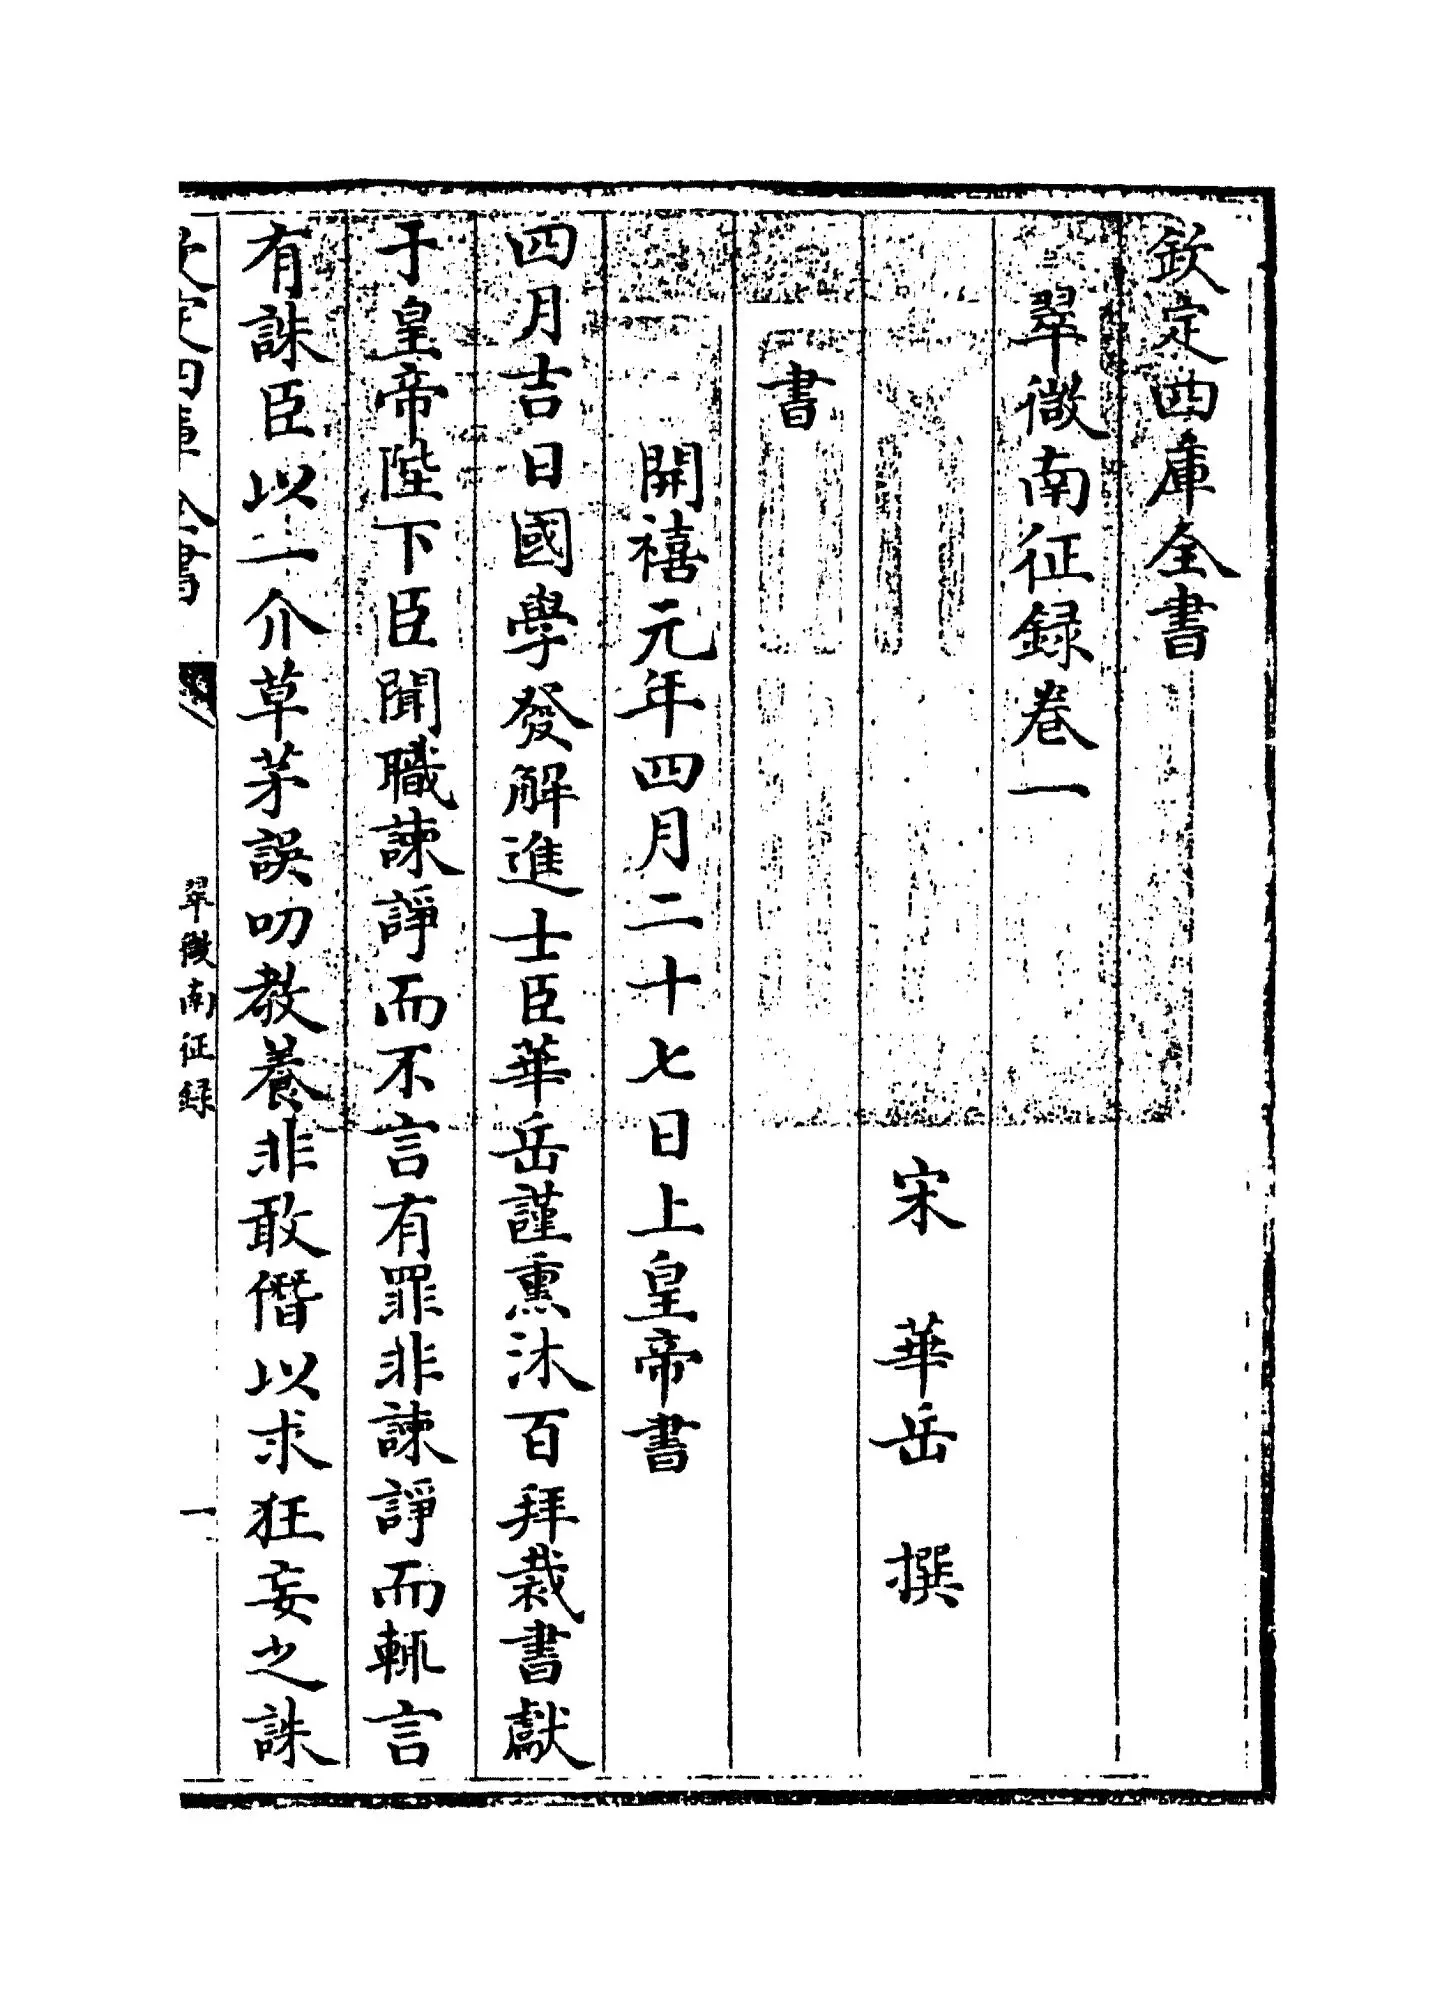 欽定四庫全書
翠微南征録卷一
宋　華岳　撰
書
開禧元年四月二十七日上皇帝書
四月吉日國學發解進士臣華岳謹熏沐百拜裁書獻
于皇帝陛下臣聞職諫諍而不言有罪非諫諍而輒言
有誅臣以一介草茅誤叨教養非敢僭以求狂妄之誅
欽定四庫全書
翠微南征録
一